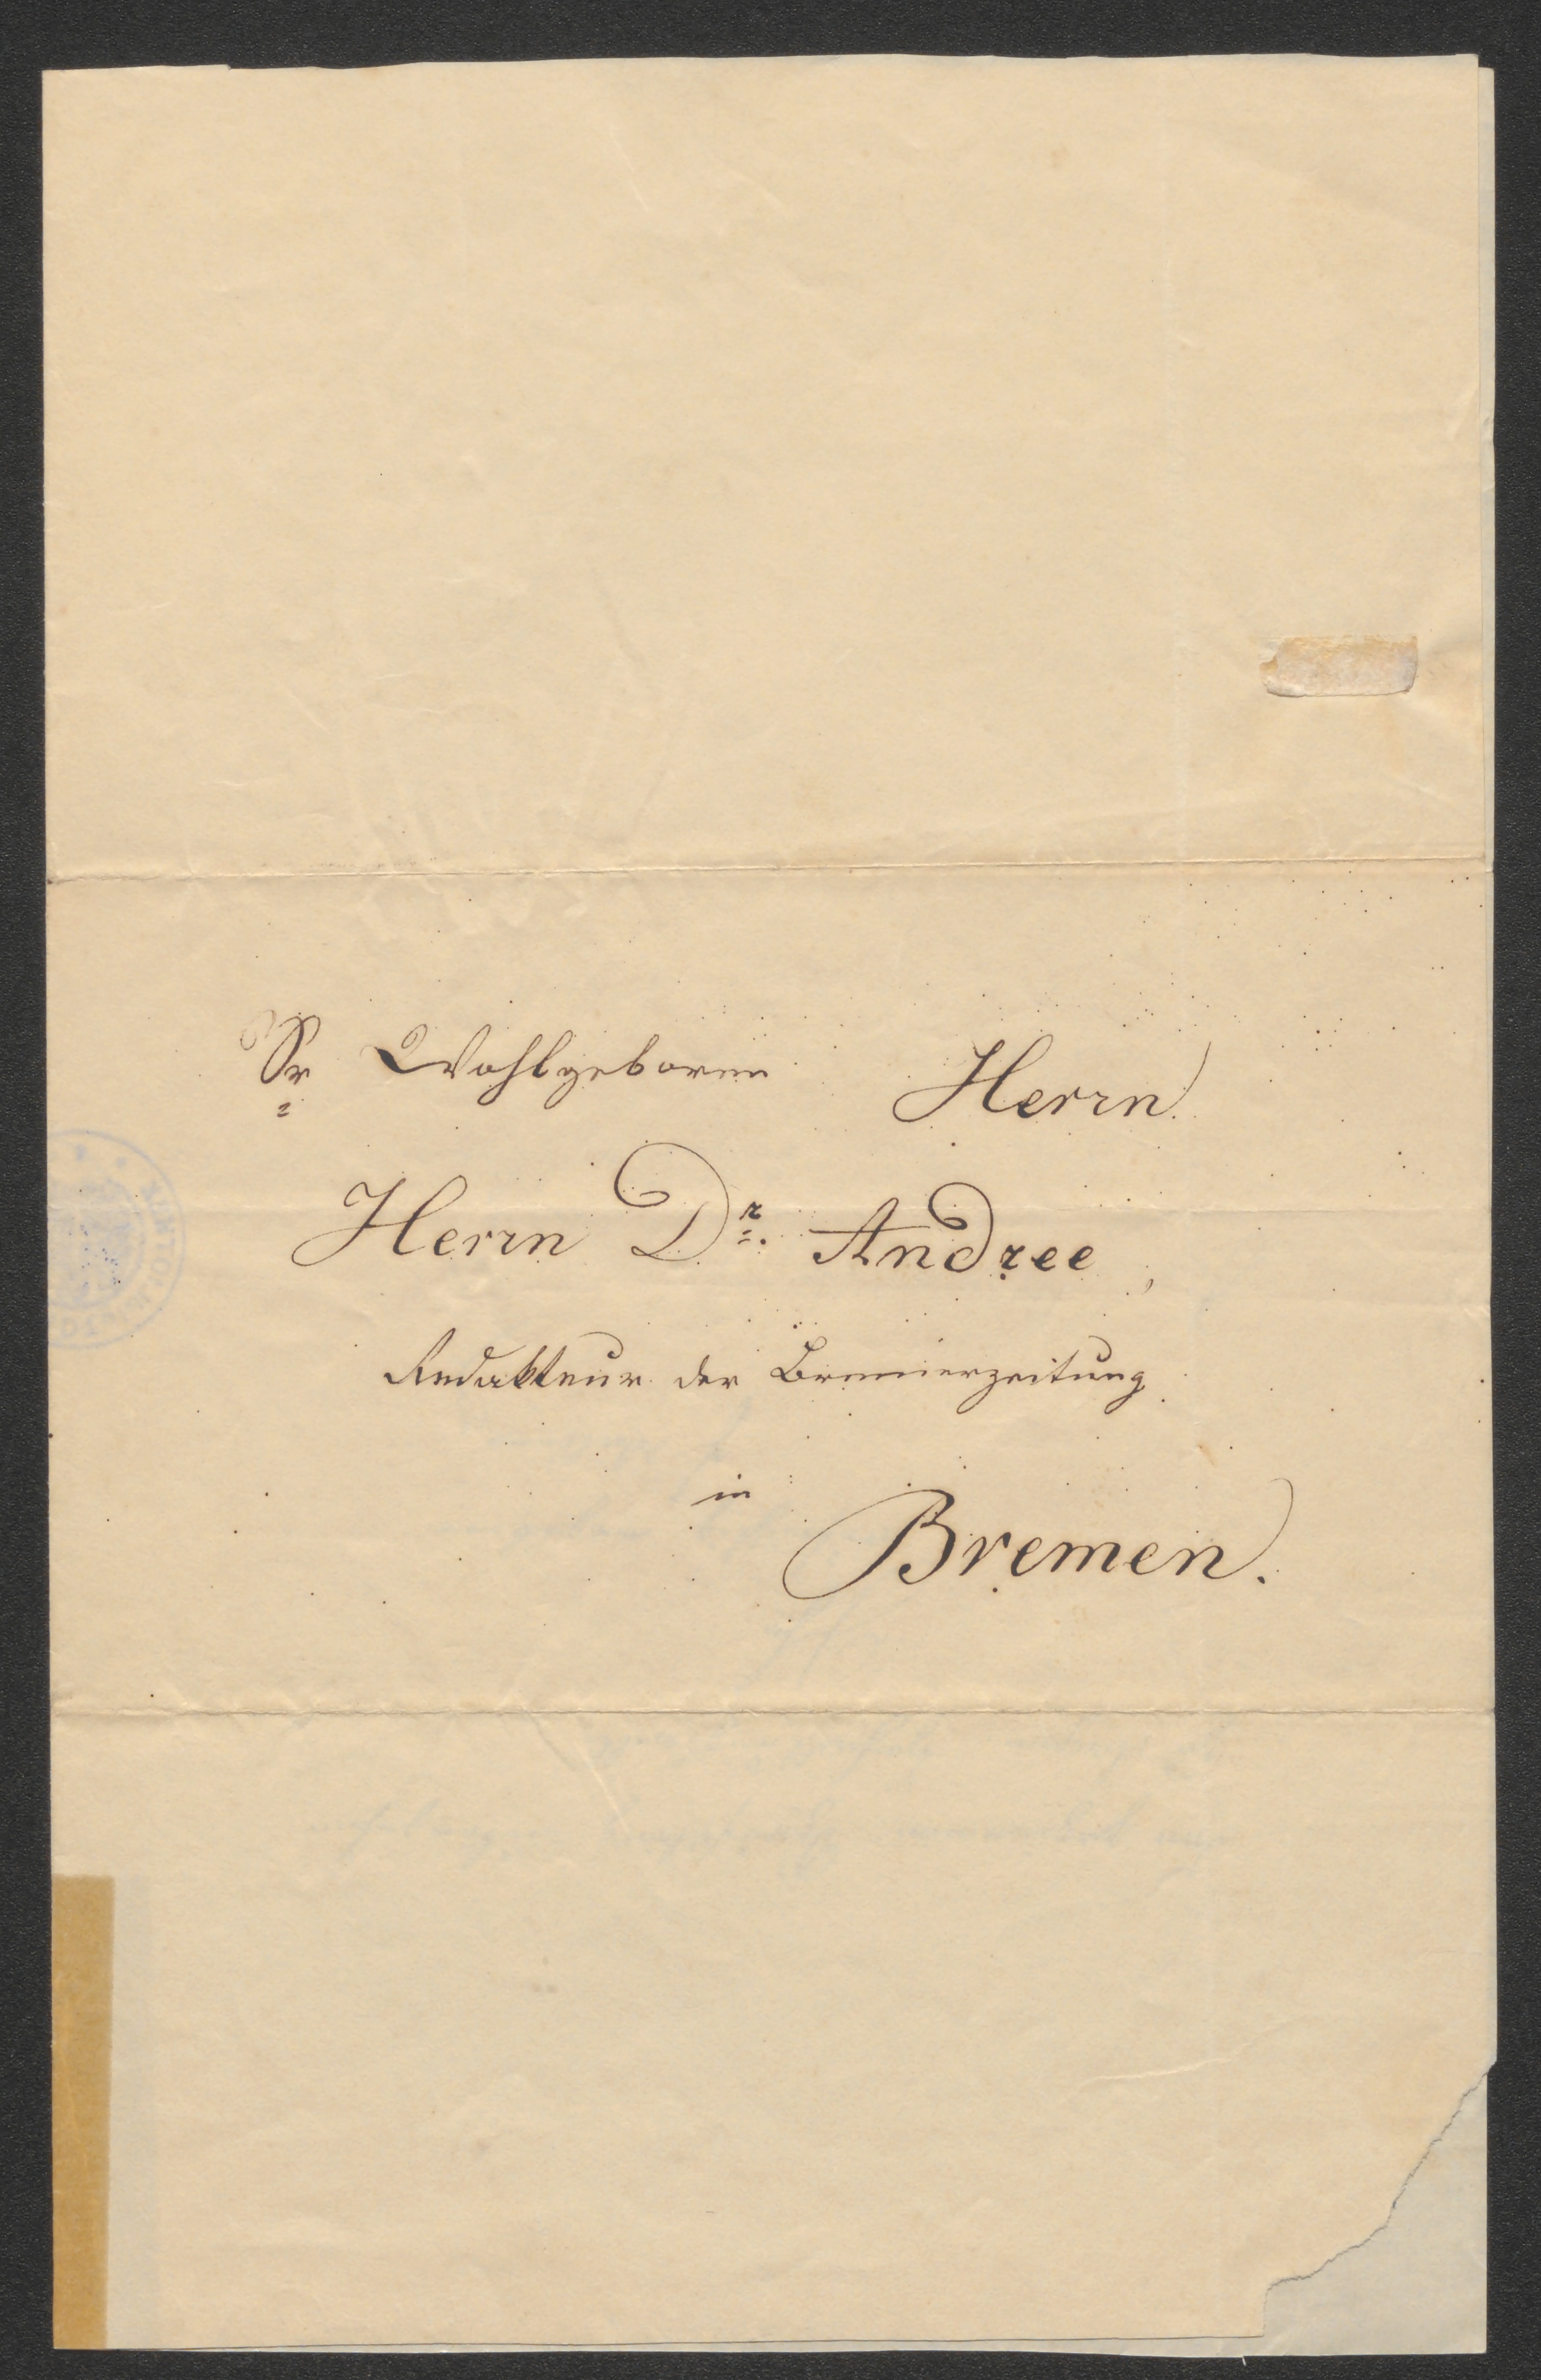 Sr Wohlgeboren Herrn
Herrn Dr. Andree,
Redakteur der Bremerzeitung
in
Bremen.